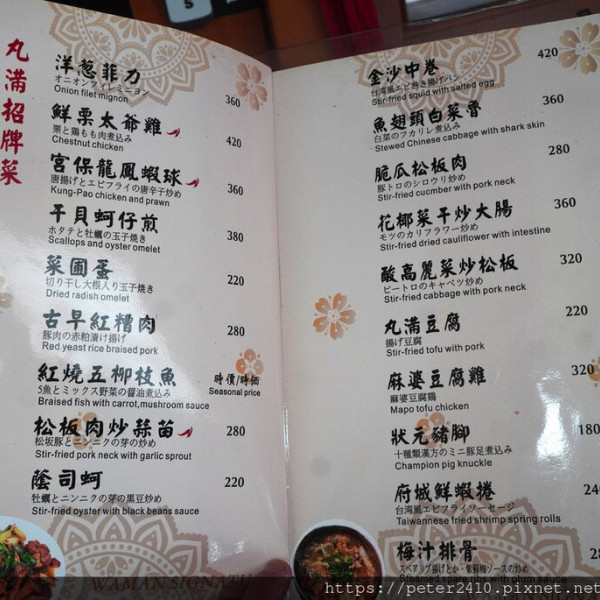 丸滿招牌菜
洋蔥菲力
オニオンフィレミニヨン
Onion filet mignon
360
鮮栗太爺雞
栗と鶏もも肉煮込み
Chestnut chicken
420
宮保龍鳳蝦球
唐揚げとエビフライの唐辛子炒め
Kung-Pao chicken and prawn
360
干貝蚵仔煎
ホタテと牡蠣の玉子焼き
Scallops and oyster omelet
380
菜圃蛋
切り干し大根入り玉子焼き
Dried radish omelet
220
古早紅糟肉
豚肉の赤粕漬け揚げ
Red yeast rice braised pork
280
紅燒五柳枝魚
5魚とミックス野菜の醤油煮込み
Braised fish with carrot,mushroom sauce
時價/時価
Seasonal price
松板肉炒蒜苗
松坂豚とニンニクの芽の炒め
Stir-fried pork neck with garlic sprout
280
蔭司蚵
牡蠣とニンニクの芽の黒豆炒め
Stir-fried oyster with black beans sauce
220
金沙中卷
台湾風エビ巻き揚げパン
Stir-fried squid with salted egg
420
魚翅頭白菜魯
白菜のフカリレ煮込み
Stewed Chinese cabbage with shark skin
360
脆瓜松板肉
豚トロのシロウリ炒め
Stir-fried cucmber with pork neck
280
花椰菜干炒大腸
モツのカリフラワー炒め
Stir-fried dried cauliflower with intestine
360
酸高麗菜炒松板
ピートロのキャベツ炒め
Stir-fried cabbage with pork neck
320
丸滿豆腐
揚げ豆腐
Stir-fried tofu with pork
220
麻婆豆腐雞
麻婆豆腐鶏
Mapo tofu chicken
320
狀元豬腳
十種類漢方のミニ豚足煮込み
Champion pig knuckle
180
府城鮮蝦捲
台湾風エビフライソーセージ
Taiwannese fried shrimp spring rolls
梅汁排骨
スペアリブ揚げとか・紫蘇梅ソースの炒め
Steamed spare ribs with plum sauce
https://peter2410.pixnet.net